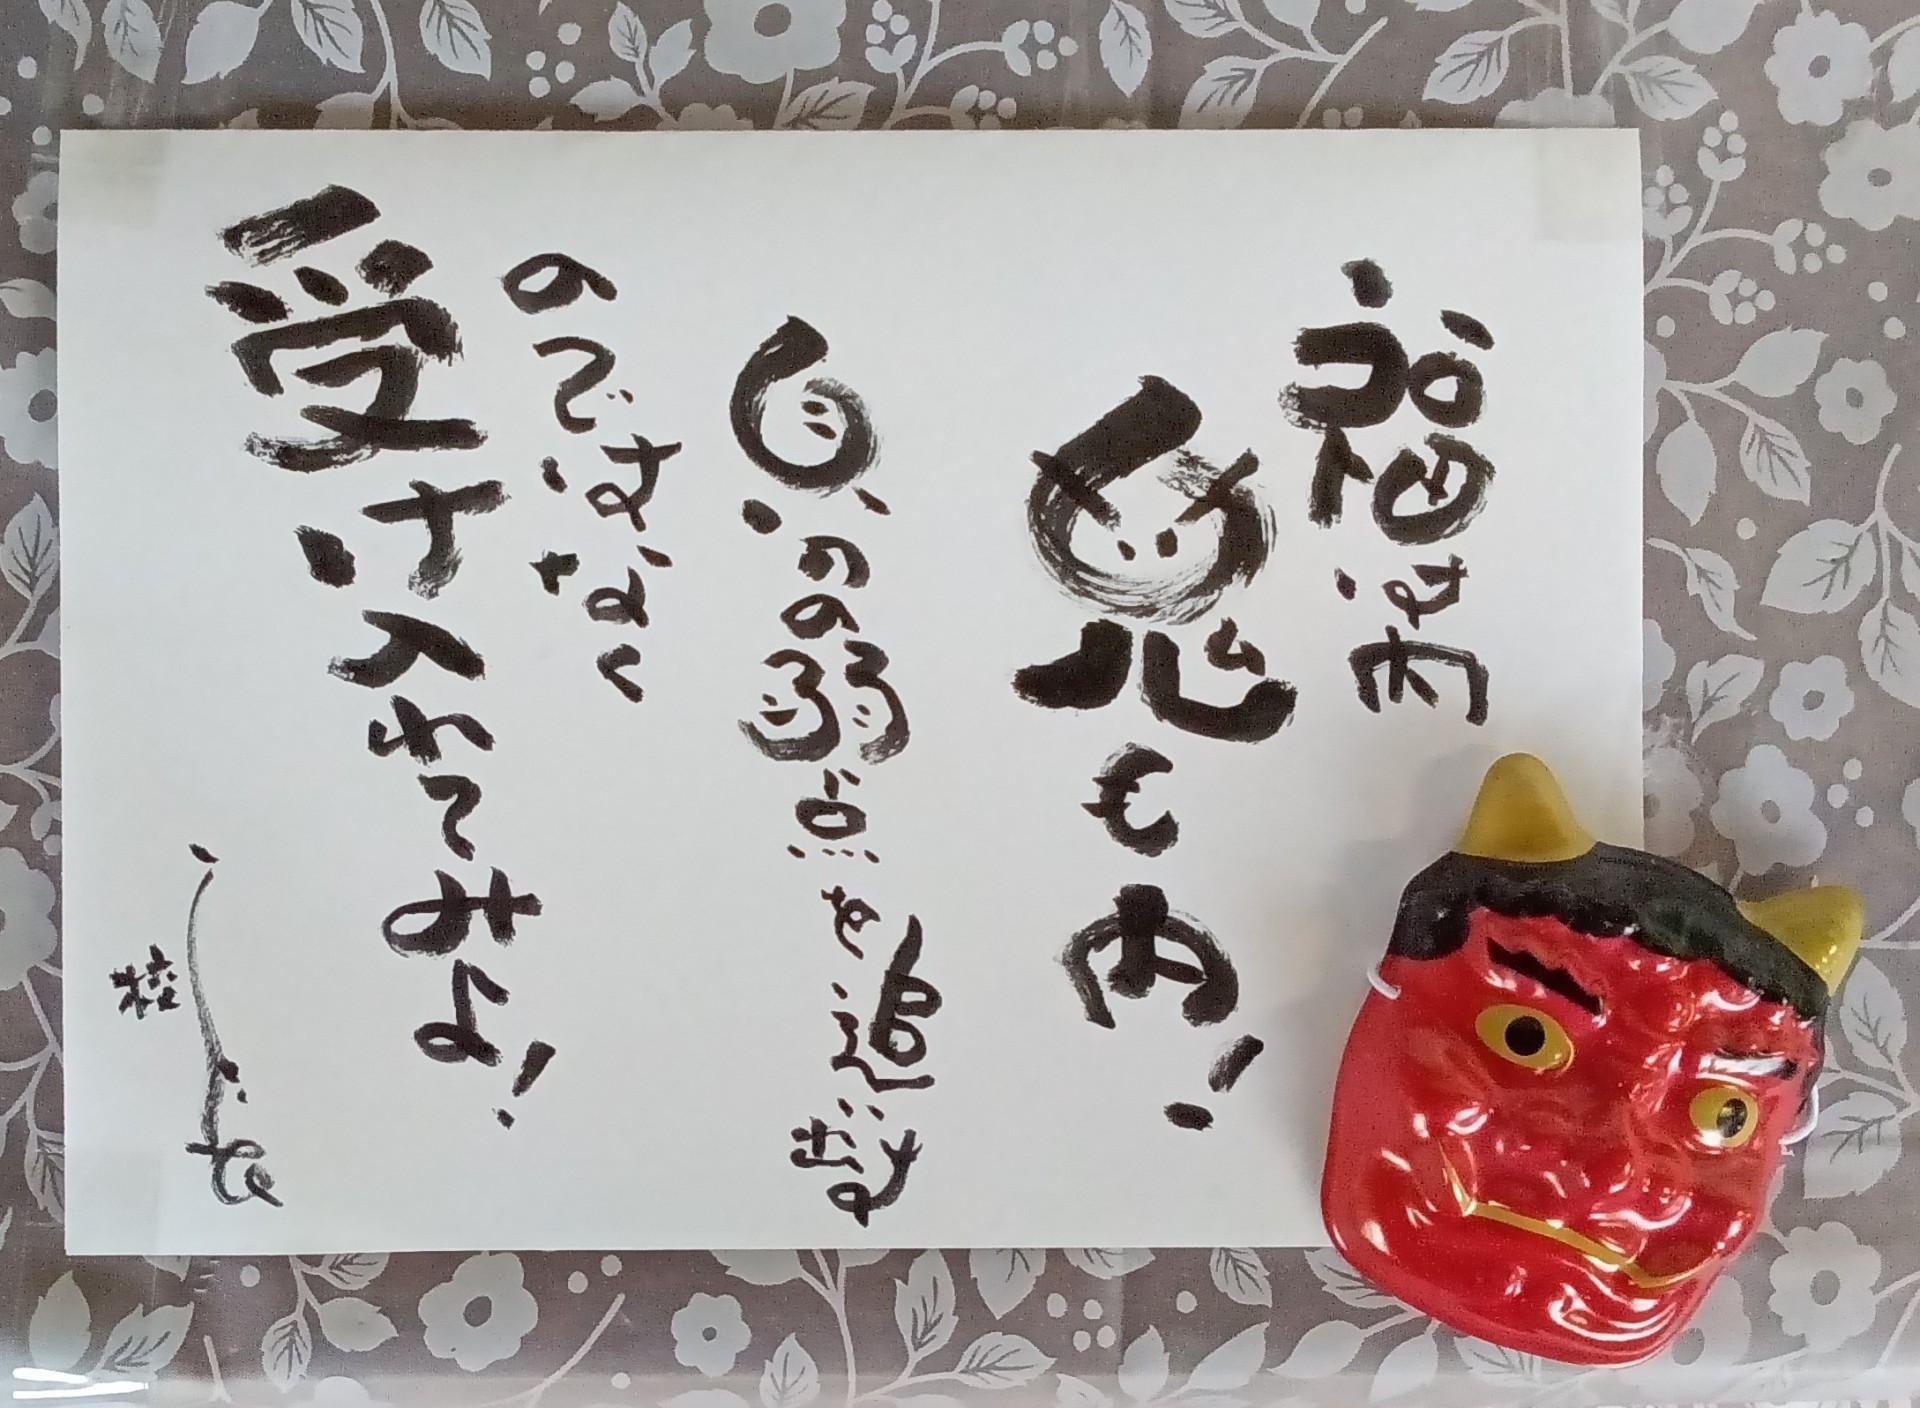 福は内
鬼も内!
自分の弱点を追い出す
のではなく
受け入れてみよ!